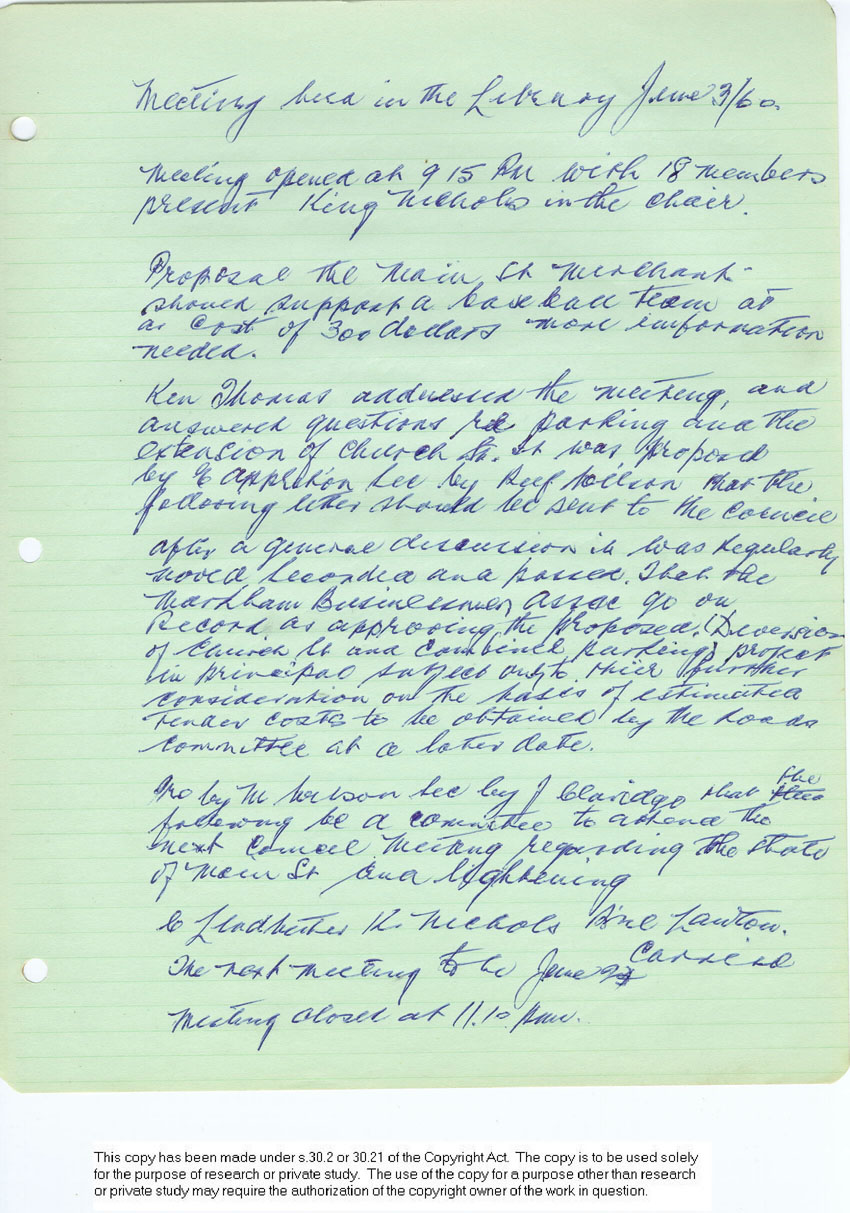 Meeting held in the Library June 3/60.
Meeting opened at 9 15 PM with 18 members
present King Nichols in the chair.
Proposal the Main St Merchants
should support a baseball team at
a cost of 300 dollars more information
needed.
Ken Thomas addressed the meeting, and
answered questions re parking and the
extension of Church St. It was proposed
by E Appleton sec by Wilson that the
following letter should be sent to the Council
after a general discussion it was Regularly
moved seconded and passed. That the
Markham Businessmen, Assoc go on
Record as approving the proposed, (Diversion
of Church St and Combined parking) project
in principal subject only to their further
consideration on the bases of estimated
Tender costs to be obtained by the Roads
committee at a later date.
Mo by M Wilson sec by J Claridge that the
following be a committee to attend the
next Council Meeting regarding the state
of Main St and lightening
K. Nichols Lawton.
The next meeting to be June Carried
Meeting closed at 11.10 p.m.
This copy has been made under s.30.2 or 30.21 of the Copyright Act. The copy is to be used solely
for the purpose of research or private study. The use of the copy for a purpose other than research
or private study may require the authorization of the copyright owner of the work in question.